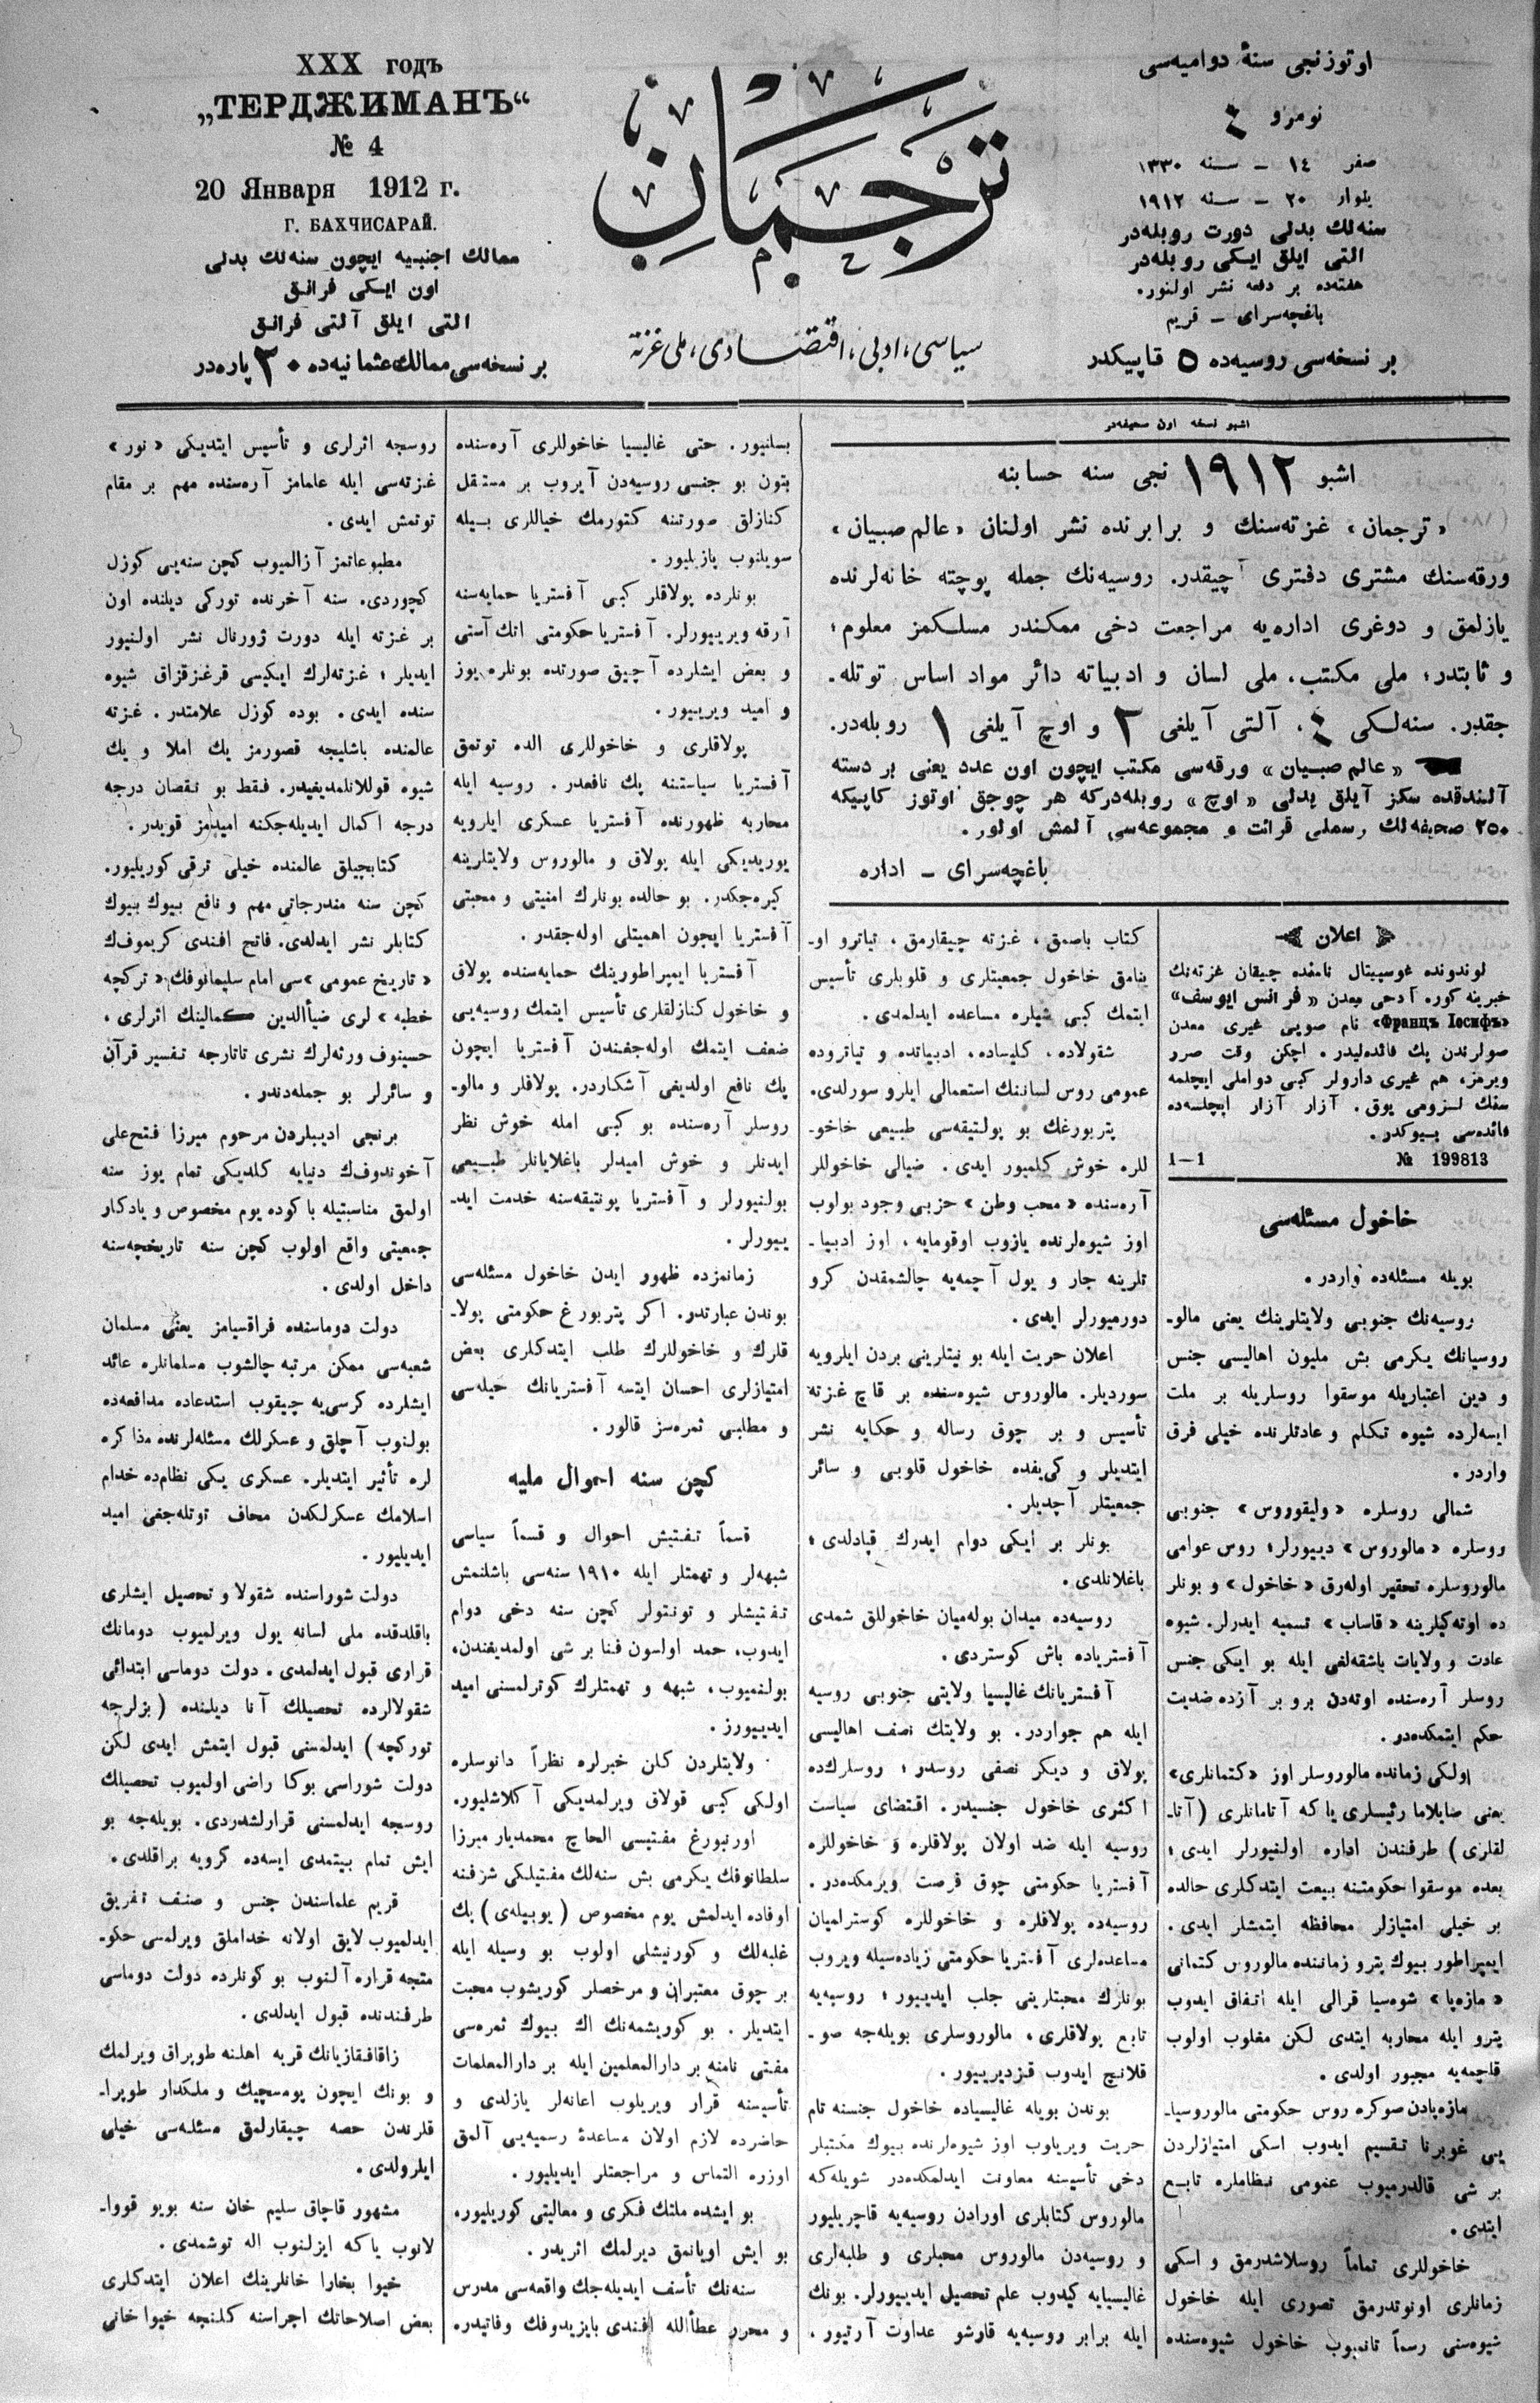 اوتوزنجی سنهٔ دوامیه‌سی
نومرو ٤
صفر ١٤ ــ سنه ١٣٣٠
ینوار ٢٠ ــ سنه ١٩١٢
سنه‌لك بدلی دورت روبله‌در
التی ایلق ایکی روبله‌در
هفته‌ده بر دفعه نشر اولنور.
باغچه‌سرای ــ قریم
بر نسخه‌سی روسیه‌ده ٥ قاپیکدر
ترجمان
سیاسی، ادبی، اقتصادی، ملی غزته
XXX годъ
„ТЕРДЖИМАНЪ“
№ 4
20 Января 1912 г.
Г. БАХЧИСАРАЙ.
ممالك اجنبیه ایچون سنه‌لك بدلی
اون ایکی فرانق
التی ایلق آلتی فرانق
بر نسخه‌سی ممالك عثمانیه‌ده ٣٠ پاره‌در
اشبو نسخه اون صحیفه‌در
اشبو ١٩١٢ نجی سنه حسابنه
«ترجمان» غزته‌سنك و برابرنده نشر اولنان «عالم صبیان»
ورقه‌سنك مشتری دفتری آچیقدر. روسیه‌نك جمله پوچته خانه‌لرنده
یازلمق و دوغری اداره‌یه مراجعت دخی ممکندر مسلکمز معلوم؛
و ثابتدر؛ ملی مکتب، ملی لسان و ادبیاته دائر مواد اساس توتله‌ـ
جقدر. سنه‌لکی ٤، آلتی آیلغی ٢ و اوچ آیلغی ١ روبله‌در.
«عالم صبیان» ورقه‌سی مکتب ایچون اون عدد یعنی بر دسته
آلندقده سکز آیلق بدلی «اوچ» روبله‌درکه هر چوجق اوتوز کاپیکه
٢٥٠ صحیفه‌لك رسملی قرائت و مجموعه‌سی آلمش اولور.
باغچه‌سرای ــ اداره
اعلان
لوندونده غوسپیتال نامنده چیقان غزته‌نك
خبرینه کوره آدحی معدن «فرانس ایوسف»
«Францъ Іосифъ» نام صویی غیری معدن
صولرندن پك فائده‌لیدر. اچکن وقت ضرر
ویرمز، هم غیری دارولر کبی دواملی ایچلمه
سنك لزومی یوق. آزار آزار ایچلسه‌ده
فائده‌سی بیوکدر.
№ 199813 1—1
خاخول مسئله‌سی
بویله مسئله‌ده واردر.
روسیه‌نك جنوبی ولایتلرینك یعنی مالوـ
روسیانك یکرمی بش ملیون اهالیسی جنس
و دین اعتباریله موسقوا روسلریله بر ملت
ایسه‌لرده شیوه تکلم و عادتلرنده خیلی فرق
واردر.
شمالی روسلره «ولیقوروس» جنوبی
روسلره «مالوروس» دییورلر؛ روس عوامی
مالوروسلره تحقیر اوله‌رق «خاخول» و بونلر
ده اوته‌کیلرینه «قاساب» تسمیه ایدرلر. شیوه
عادت و ولایات باشقه‌لغی ایله بو ایکی جنس
روسلر آره‌سنده اوته‌دن برو بر آزده ضدیت
حکم ایتمکده‌در.
اولکی زمانده مالوروسلر اوز «کتمانلری»
یعنی صایلاما رئیسلری یا که آتامانلری (آتاـ
لقلری) طرفندن اداره اولنیورلر ایدی؛
بعده موسقوا حکومتنه بیعت ایتدکلری حالده
بر خیلی امتیازلر محافظه ایتمشلر ایدی.
ایمپراطور بیوك پترو زماننده مالوروس کتمانی
«مازه‌پا» شوه‌سیا قرالی ایله اتفاق ایدوب
پترو ایله محاربه ایتدی لکن مغلوب اولوب
قاچمه‌یه مجبور اولدی.
مازه‌پادن صوکره روس حکومتی مالوروسیاـ
یی غوبرنا تقسیم ایدوب اسکی امتیازلردن
بر شی قالدرمیوب عمومی نظاملره تابع
ایتدی.
خاخوللری تماماً روسلاشدرمق و اسکی
زمانلری اونوتدرمق تصوری ایله خاخول
شیوه‌سنی رسماً تانمیوب خاخول شیوه‌سنده
کتاب باصمق، غزته چیقارمق، تیاترو اوـ
ینامق خاخول جمعیتلری و قلوبلری تأسیس
ایتمك کبی شیلره مساعده ایدلمدی.
شقولاده، کلیساده، ادبیاتده و تیاتروده
عمومی روس لساننك استعمالی ایلرو سورلدی.
پتربورغك بو پولتیقه‌سی طبیعی خاخوـ
للره خوش کلمیور ایدی. ضیالی خاخوللر
آره‌سنده «محب وطن» حزبی وجود بولوب
اوز شیوه‌لرنده یازوب اوقومایه، اوز ادبیاـ
تلرینه جار و یول آچمه‌یه چالشمقدن کرو
دورمیورلر ایدی.
اعلان حریت ایله بو نیتلرینی بردن ایلرویه
سوردیلر. مالوروس شیوه‌سنده بر قاچ غزته
تأسیس و بر چوق رساله و حکایه نشر
ایتدیلر و کی‌یفده خاخول قلوبی و سائر
جمعیتلر آچدیلر.
بونلر بر ایکی دوام ایدرك قپادلدی؛
باغلانلدی.
روسیه‌ده میدان بوله‌میان خاخوللق شمدی
آفستریاده باش کوستردی.
آفستریانك غالیسیا ولایتی جنوبی روسیه
ایله هم جواردر. بو ولایتك نصف اهالیسی
پولاق و دیکر نصفی روسدر؛ روسلرك‌ده
اکثری خاخول جنسیدر. اقتضای سیاست
روسیه ایله ضد اولان پولاقلره و خاخوللره
آفستریا حکومتی چوق فرصت ویرمکده‌در.
روسیه‌ده پولاقلره و خاخوللره کوسترلمیان
مساعده‌لری آفستریا حکومتی زیاده‌سیله ویروب
بونلرك محبتلرینی جلب ایدییور؛ روسیه‌یه
تابع پولاقلری، مالوروسلری بویله‌جه صوـ
قلانچ ایدوب قزدیرییور.
بوندن بویله غالیسیاده خاخول جنسنه تام
حریت ویریلوب اوز شیوه‌لرنده بیوك مکتبلر
دخی تأسیسنه معاونت ایدلمکده‌در شویله‌که
مالوروس کتابلری اورادن روسیه‌یه قاچریلیور
و روسیه‌دن مالوروس محبلری و طلبه‌لری
غالیسیایه کیدوب علم تحصیل ایدییورلر. بونك
ایله برابر روسیه‌یه قارشو عداوت آرتیور،
بسلنیور. حتی غالیسیا خاخوللری آره‌سنده
بتون بو جنسی روسیه‌دن آیروب بر مستقل
کنازلق صورتنه کتورمك خیاللری بیله
سویلنوب یازیلیور.
بونلرده پولاقلر کبی آفستریا حمایه‌سنه
آرقه ویرییورلر. آفستریا حکومتی انك آستی
و بعض ایشلرده آچیق صورتده بونلره یوز
و امید ویرییور.
پولاقلری و خاخوللری الده توتمق
آفستریا سیاستنه پك نافعدر. روسیه ایله
محاربه ظهورنده آفستریا عسکری ایلرویه
یوریدیکی ایله پولاق و مالوروس ولایتلرینه
کیره‌جکدر. بو حالده بونلرك امنیتی و محبتی
آفستریا ایچون اهمیتلی اوله‌جقدر.
آفستریا ایمپراطورینك حمایه‌سنده پولاق
و خاخول کنازلقلری تأسیس ایتمك روسیه‌یی
ضعف ایتمك اوله‌جغندن آفستریا ایچون
پك نافع اولدیغی آشکاردر. پولاقلر و مالوـ
روسلر آره‌سنده بو کبی امله خوش نظر
ایدنلر و خوش امیدلر باغلایانلر طبیعی
بولنیورلر و آفستریا پولتیقه‌سنه خدمت ایدـ
ییورلر.
زمانمزده ظهور ایدن خاخول مسئله‌سی
بوندن عبارتدر. اکر پتربورغ حکومتی پولاـ
قلرك و خاخوللرك طلب ایتدکلری بعض
امتیازلری احسان ایتسه آفستریانك حیله‌سی
و مطلبی ثمره‌سز قالور.
کچن سنه احوال ملیه
قسماً تفتیش احوال و قسماً سیاسی
شبهه‌لر و تهمتلر ایله ١٩١٠ سنه‌سی باشلنمش
تفتیشلر و تونتولر کچن سنه دخی دوام
ایدوب، حمد اولسون فنا بر شی اولمدیغندن،
بولنمیوب، شبهه و تهمتلرك کوترلمسنی امید
ایدییورز.
ولایتلردن کلن خبرلره نظراً دانوسلره
اولکی کبی قولاق ویرلمدیکی آکلاشلیور.
اورنبورغ مفتیسی الحاج محمدیار میرزا
سلطانوفك یکرمی بش سنه‌لك مفتیلکی شرفنه
اوفاده ایدلمش یوم مخصوص (یوبیله‌ی) پك
غلبه‌لك و کورنیشلی اولوب بو وسیله ایله
بر چوق معتبران و مرخصلر کوریشوب محبت
ایتدیلر. بو کوریشمه‌نك اك بیوك ثمره‌سی
مفتی نامنه بر دارالمعلمین ایله بر دارالمعلمات
تأسیسنه قرار ویریلوب اعانه‌لر یازلدی و
حاضرده لازم اولان مساعدهٔ رسمیه‌یی آلمق
اوزره التماس و مراجعتلر ایدیلیور.
بو ایشده ملتك فکری و معالیتی کوریلیور.
بو ایش اویانمق دیرلمك اثریدر.
سنه‌نك تأسف ایدیله‌جك واقعه‌سی مدرس
و محرر عطأالله افندی بایزیدوفك وفاتیدره
روسجه اثرلری و تأسیس ایتدیکی «نور»
غزته‌سی ایله علمامز آره‌سنده مهم بر مقام
توتمش ایدی.
مطبوعاتمز آزالمیوب کچن سنه‌یی کوزل
کچوردی. سنه آخرنده تورکی دیلنده اون
بر غزته ایله دورت ژورنال نشر اولنیور
ایدیلر؛ غزته‌لرك ایکیسی قرغزقزاق شیوه
سنده ایدی. بوده کوزل علامتدر. غزته
عالمنده باشلیجه قصورمز یك املا و یك
شیوه قوللانلمدیغیدر. فقط بو نقصان درجه
درجه اکمال ایدیله‌جکنه امیدمز قویدر.
کتابجیلق عالمنده خیلی ترقی کوریلیور.
کچن سنه مندرجاتی مهم و نافع بیوك بیوك
کتابلر نشر ایدلدی. فاتح افندی کریموف‌ك
«تاریخ عمومی»سی امام سلیمانوفك «ترکچه
خطبه» لری ضیأالدین کمالینك اثرلری،
حسینوف ورثه‌لرك نشری تاتارجه تفسیر قرآن
و سائرلر بو جمله‌دندر.
برنجی ادیبلردن مرحوم میرزا فتح‌علی
آخوندوف‌ك دنیایه کلدیکی تمام یوز سنه
اولمق مناسبتیله باکوده یوم مخصوص و یادکار
جمعیتی واقع اولوب کچن سنه تاریخچه‌سنه
داخل اولدی.
دولت دوماسنده فراقسیامز یعنی مسلمان
شعبه‌سی ممکن مرتبه چالشوب مسلمانلره عائد
ایشلرده کرسی‌یه چیقوب استدعاده مدافعه‌ده
بولنوب آچلق و عسکرلك مسئله‌لرنده مذاکره
لره تأثیر ایتدیلر. عسکری یکی نظام‌ده خدام
اسلامك عسکرلکدن معاف توتله‌جغی امید
ایدیلیور.
دولت شوراسنده شقولا و تحصیل ایشلری
باقلدقده ملی لسانه یول ویرلمیوب دومانك
قراری قبول ایدلمدی. دولت دوماسی ابتدائی
شقولالرده تحصیلك آنا دیلنده (بزلرجه
تورکچه) ایدلمسنی قبول ایتمش ایدی لکن
دولت شوراسی بوکا راضی اولمیوب تحصیلك
روسجه ایدلمسنی قرارلشدردی. بویله‌جه بو
ایش تمام بیتمدی ایسه‌ده کرویه براقلدی.
قریم علماسندن جنس و صنف تفریق
ایدلمیوب لایق اولانه خداملق ویرلمسی حکوـ
متجه قراره آلنوب بو کونلرده دولت دوماسی
طرفندنده قبول ایدلدی.
زاقافقازیانك قریه اهلنه طوپراق ویرلمك
و بونك ایچون پومسچیك و ملکدار طوپراـ
قلرندن حصه چیقارلمق مسئله‌سی خیلی
ایلرولدی.
مشهور قاچاق سلیم خان سنه بویو قوواـ
لانوب یا که ایزلنوب اله توشمدی.
خیوا بخارا خانلرینك اعلان ایتدکلری
بعض اصلاحاتك اجراسنه کلنجه خیوا خانی